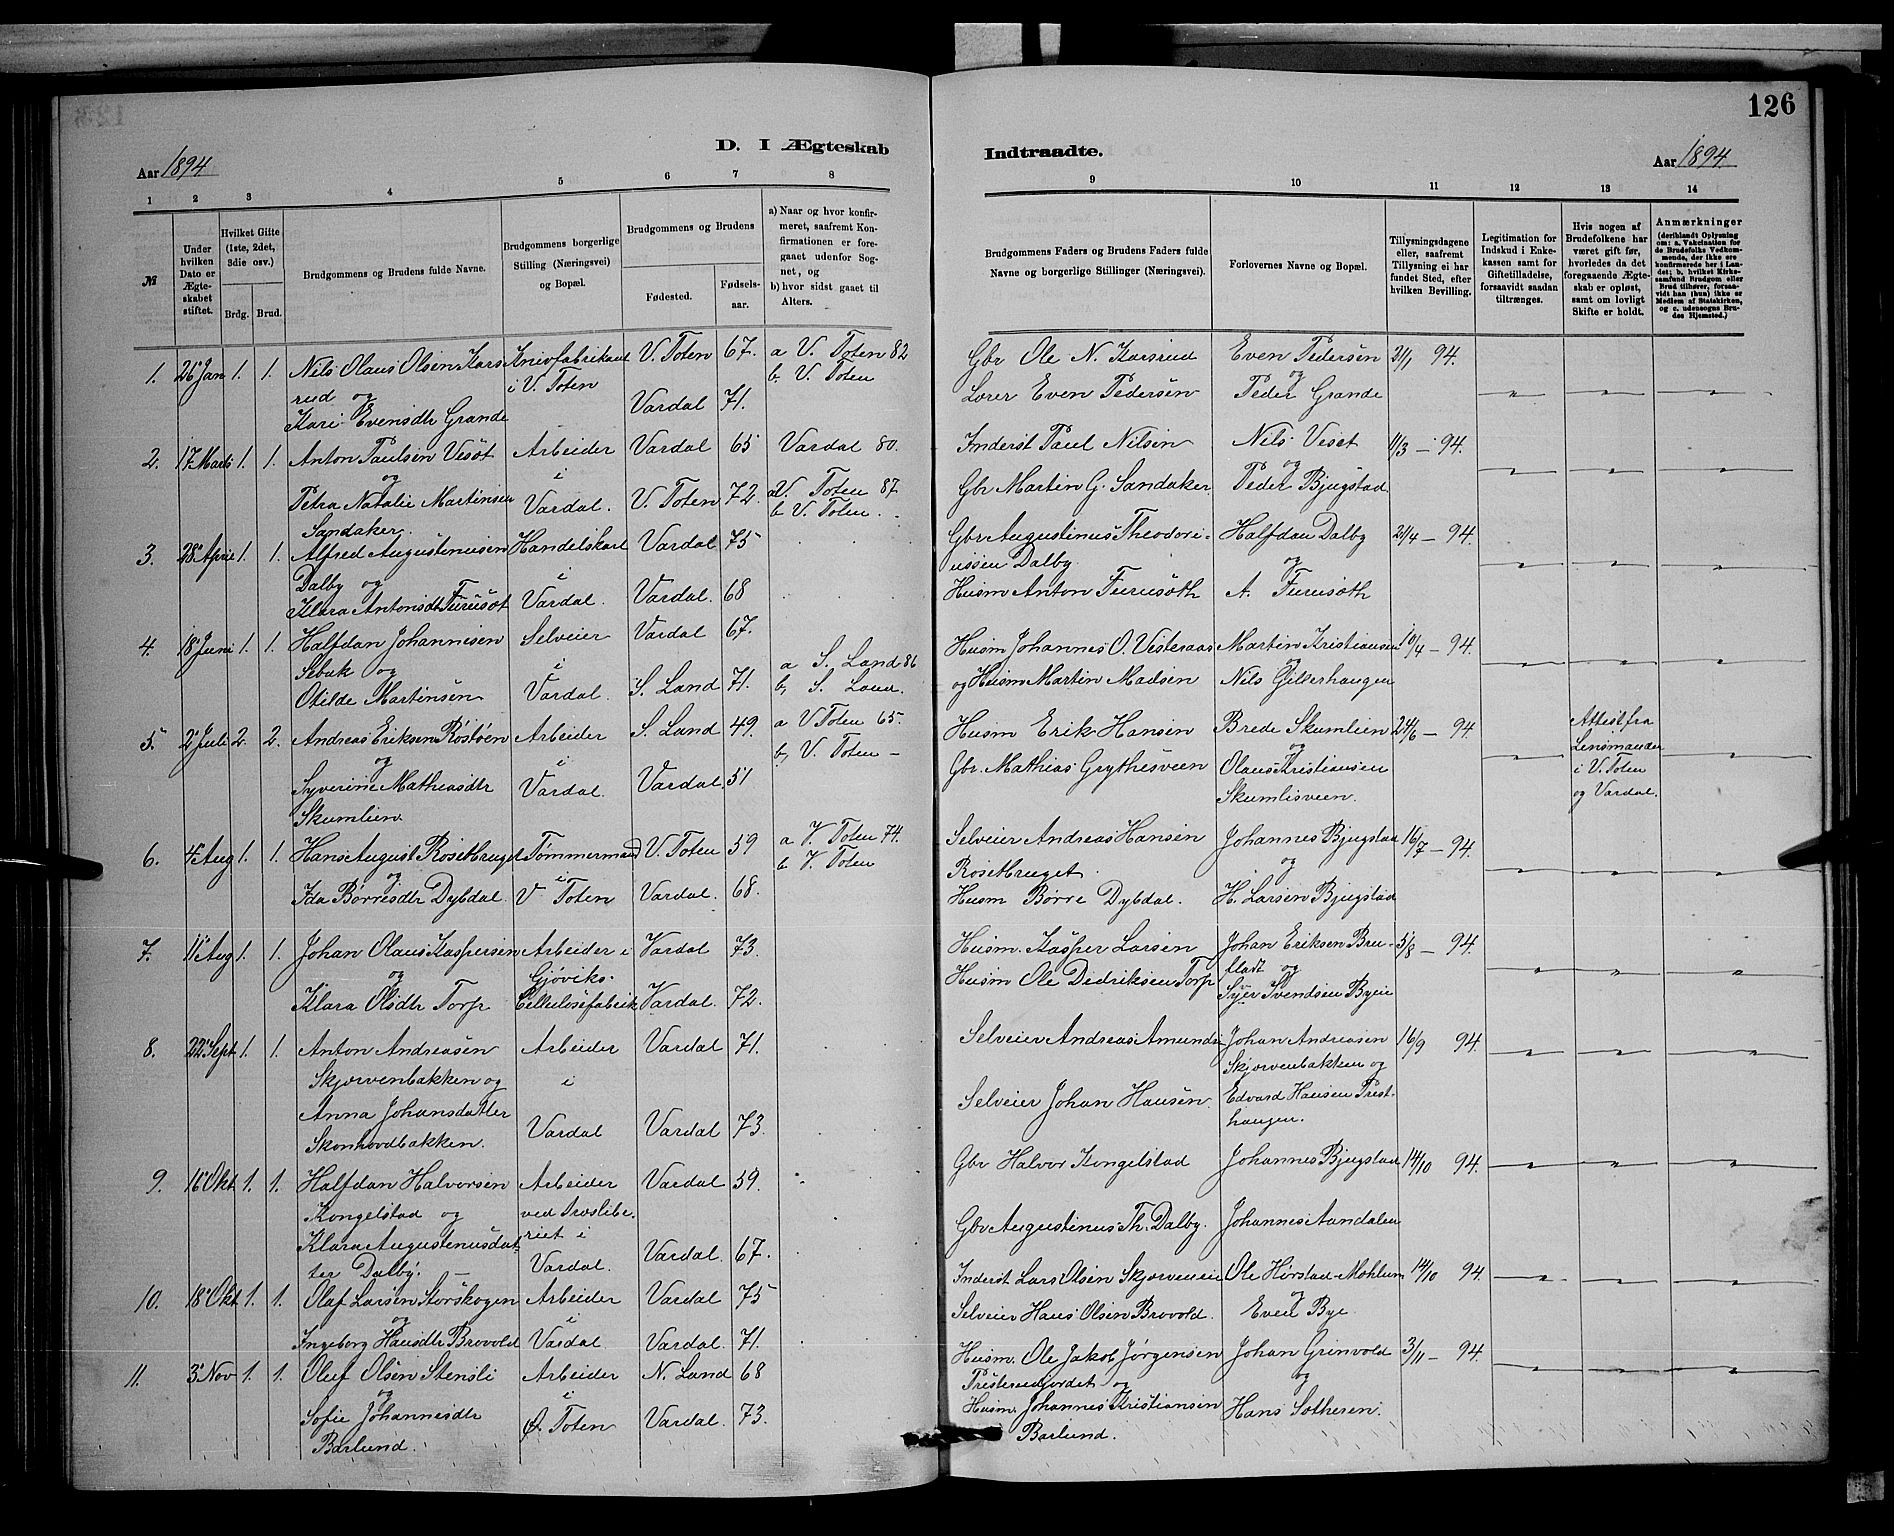 126
D. I Ægteskab Indtraadte.
Aar 1894 Aar 1894
1 2 3 4 5 6 7 8 9 10 11 12 13 14
№
Under hvilken Dato er Ægteskabet stiftet.
Hvilket Gifte (1ste, 2det, 3die osv.)
Brdg. Brud.
Brudgommens og Brudens fulde Navne.
Brudgommens borgerlige Stilling (Næringsvei) og Bopæl.
Brudgommens og Brudens
Fødested. Fødselsaar.
a) Naar og hvor konfirmeret, saafremt Konfirmationen er foregaaet udenfor Sognet, og
b) hvor sidst gaaet til Alters.
Brudgommens Faders og Brudens Faders fulde Navne og borgerlige Stillinger (Næringsvei).
Forlovernes Navne og Bopæl.
Tillysningsdagene eller, saafremt Tillysning ei har fundet Sted, efter hvilken Bevilling.
Legitimation for Indskud i Enkekassen samt for Giftetilladelse, forsaavidt saadan tiltrænges.
Hvis nogen af Brudefolkene har været gift før, hvorledes da det foregaaende Ægteskab er opløst, samt om lovligt Skifte er holdt.
Anmærkninger (deriblandt Oplysning om: a. Vakcination for de Brudefolks Vedkommende, der ikke ere konfirmerede her i Landet; b. hvilket Kirkesamfund Brudgom eller Brud tilhører, forsaavidt han (hun) ikke er Medlem af Statskirken, og c. udensogns Brudes Hjemsted.)
1. 26 Jan 1. 1. Nils Olaus Olsen Kars Knivfabrikant V. Toten 67. a V. Toten 82 Gbr Ole N. Karsrud Even Pedersen 21/1 94.
rud og i V. Toten b. V. Toten og
Kari Evensdtr Grande Vardal 71. Lærer Even Pedersen Peder Grande
2. 17 Marts 1. 1. Anton Paulsen Vesøt Arbeider Vardal 65 Vardal 80. Inderst Paul Nilsen Nils Vesøt 11/3 – 94.
og i og
Petra Natalie Martinsen Vardal. V. Toten 72. a V. Toten 87 Gbr Martin G. Sandaker Peder Bjugstad
Sandaker. b V. Toten.
3. 28 April 1. 1. Alfred Augustenusen Handelskarl Vardal 75 Gbr Augustinus Theodori- Halfdan Dalby 21/4 – 94.
Dalby og i ussen Dalby. og
Klara Antonsdtr Furusøt Vardal. Vardal. 68 Husm Anton Furusøth A. Furusøth
4. 18 Juni 1. 1. Halfdan Johannesen Selveier Vardal 67. Husm Johannes O. Vesteraas Martin Kristiansen 10/4 – 94.
og i a S. Land 86 og
Otilde Martinsen Vardal. S. Land 71. b, S. Land. og Husm Martin Madsen Nils
5. 2 Juli 2. 2. Andreas Eriksen Røstøen Arbeider S. Land 49. a V. Toten 65. Husm Erik Hansen Brede Skumlien 24/6 – 94. Attest fra
og i b, V. Toten – og Lensmanden
Syverine Mathiasdtr Vardal. Vardal. 51 Gbr. Mathias Grythesveen Olaus Kristiansen i V. Toten
Skumlien Skumlisveen. og Vardal.
6. 4 Aug 1. 1. Hans August Rosetbruget Tømmermand V. Toten 59 a V. Toten 74. Selveier Andreas Hansen Johannes Bjugstad 16/7 – 94.
og i b V. Toten Rosetbruget. og
Ida Børresdtr Dybdal. V Toten Vardal. 68. Husm Børre Dybdal. H. Larsen Bjugstad
7. 11 Aug 1. 1. Johan Olaus Kaspersen Arbeider i Vardal 73. Husm. Kasper Larsen Johan Eriksen Bru- 5/8 – 94.
og Gjøviks fladt og
Klara Olsdtr Torp Cellulosefabrik Vardal. 72. Husm Ole Dedriksen Torp Syver Svendsen Byeie
8. 22 Sept 1. 1. Anton Andreasen Arbeider Vardal 71. Selveier Andreas Amunds Johan Andreasen 16/9 94.
Skjærvenbakken og i Skjærvenbakken og
Anna Johansdatter Selveier Johan Hansen. Edvard Hansen Prest-
Skonhovdbakken. Vardal Vardal 73. haugen.
9. 16 Okt 1. 1. Halfdan Halvorsen Arbeider Vardal 59. Gbr Halvor Kongelstad Johannes Bjugstad 14/10 94.
Kongelstad og ved Træslibe-
Klara Augustenusdat riet i Gbr Augustinus Th. Dalby. Johannes Aandalen
ter Dalby. – Vardal. Vardal. 67.
10. 18 Okt 1. 1. Olaf Larsen Storskogen Arbeider Vardal 75 Inderst Lars Olsen Skjærveneie Ole Hørstad Möhlum 14/10 94.
og i og
Ingeborg Hansdtr Brovold Vardal Vardal. 71. Selveier Hans Olsen Brovold. Even Bye.
11. 3 Nov 1. 1. Oluf Olsen Stensli Arbeider N. Land 68 Husm. Ole Jakob Jørgensen Johan Grinvold 3/11 – 94.
og i og og
Sofie Johannesdtr Ø. Toten Vardal. 73. Husm. Johannes Kristiansen Hans
Barlund. Barlund.